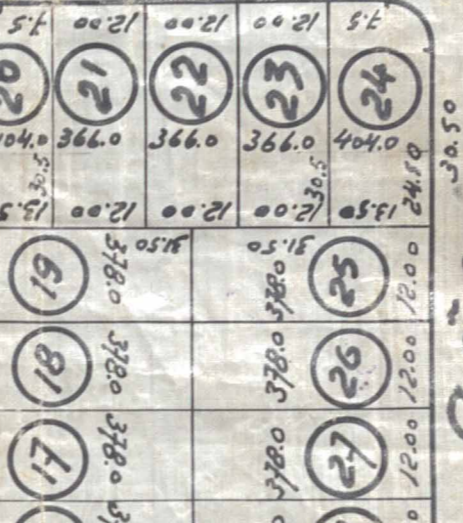 7.5 12.00 12.00 12.00 7.5
20 21 22 23 24
404.0 366.0 366.0 366.0 404.0
30.5 30.5 24.50 30.50
13.5 12.00 12.00 12.00 13.50
31.50 31.50
19 378.0 378.0 25 12.00
18 378.0 378.0 26 12.00
17 378.0 378.0 27 12.00